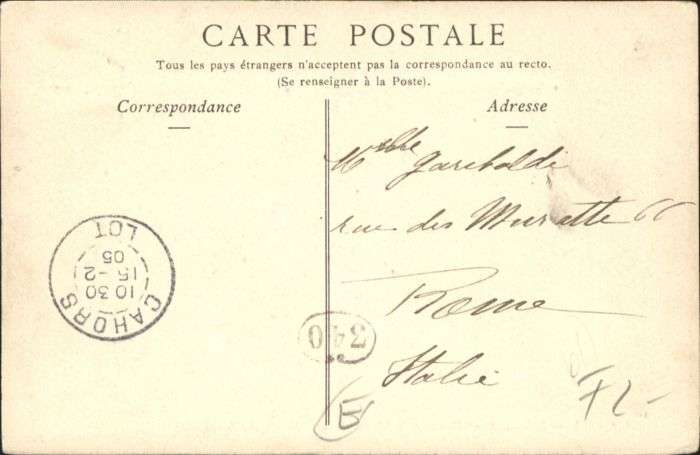 CARTE POSTALE
Tous les pays étrangers n'acceptent pas la correspondance au recto.
(Se renseigner à la Poste).
Correspondance
Adresse
Garibaldi
rue des Muratte 66
Rome
Italie
CAHORS
10 30
15 -2
05
LOT
340
E